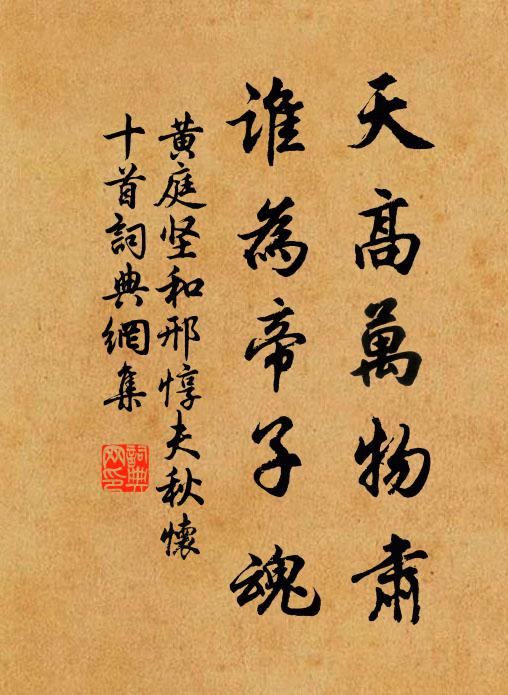 天高萬物肅
誰為帝子魂
黄庭坚和邢惇夫秋懷
十首詞典網集
詞典
网印